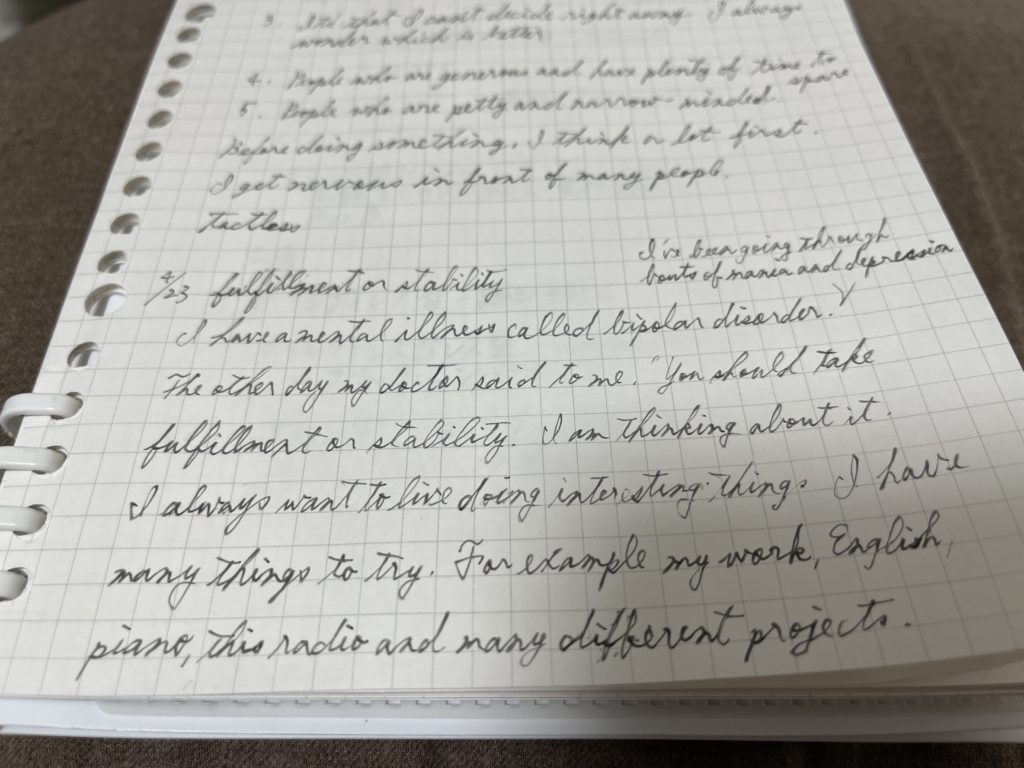 3. It's that I can't decide right away. I always
wonder which is better
4. People who are generous and have plenty of time to
spare
5. People who are petty and narrow-minded.
Before doing something, I think a lot first.
I get nervous in front of many peopl.
tactless
I've been going through
bouts of mania and depression
4/23 fulfillment or stability
I have a mental illness called bipolar disorder.
The other day my doctor said to me. "You should take
fulfillment or stability. I am thinking about it.
I always want to live doing interesting things. I have
many things to try. For example my work, English,
piano, this radio and many different projects.